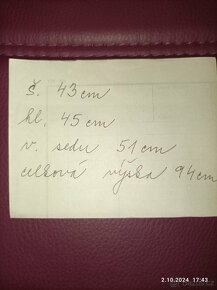 š. 43 cm
hl. 45 cm
v. sedu 51 cm
celková výška 94 cm
2.10.2024 24:43